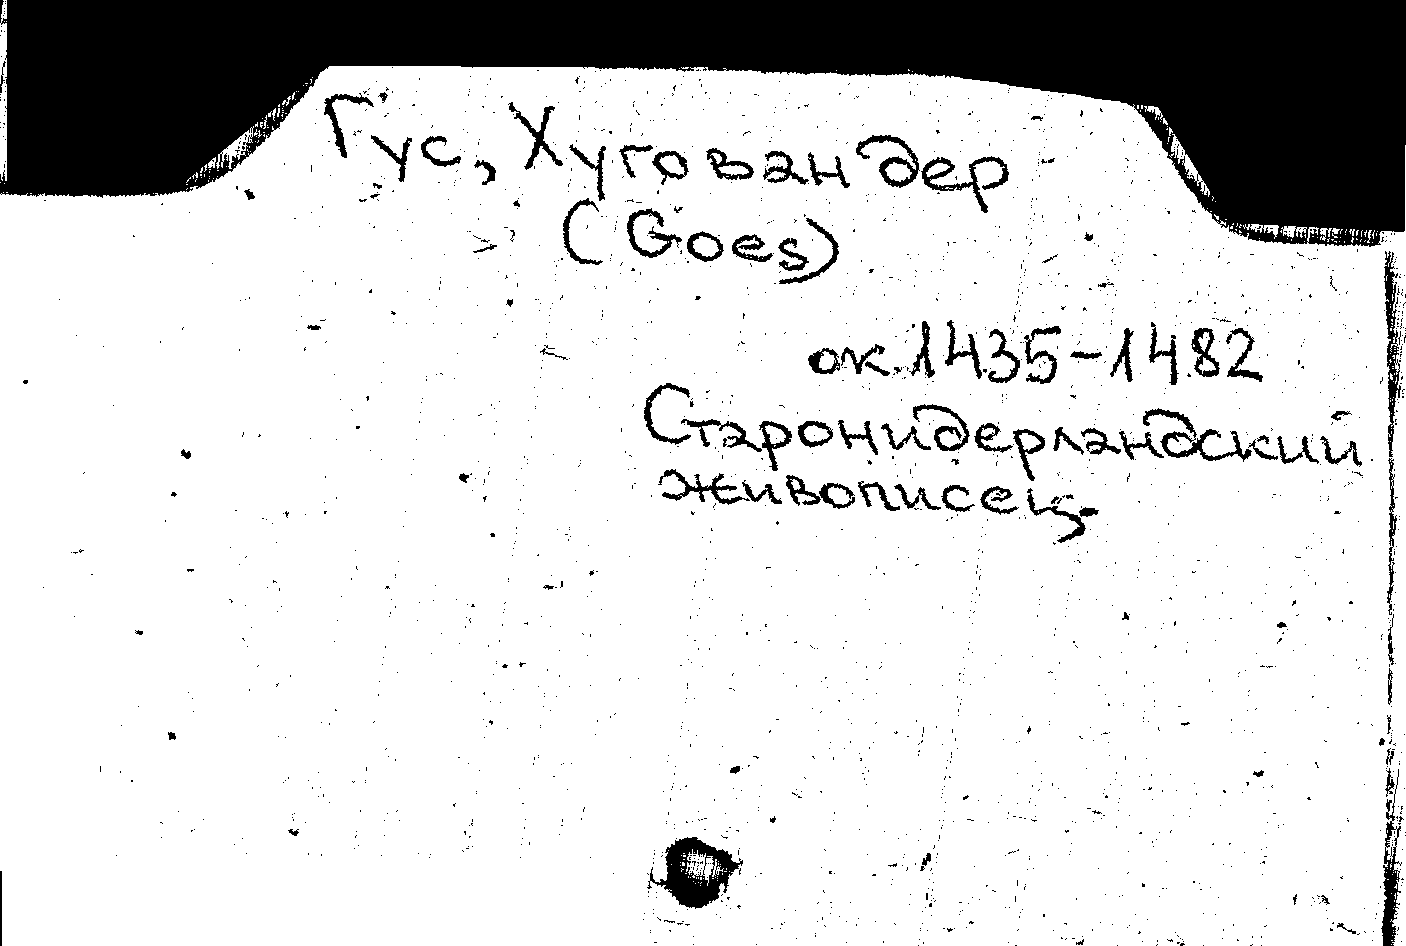 Гус, Хуго ван дер
(Goes)
ок. 1435-1482
Старонидерландский
живописец.